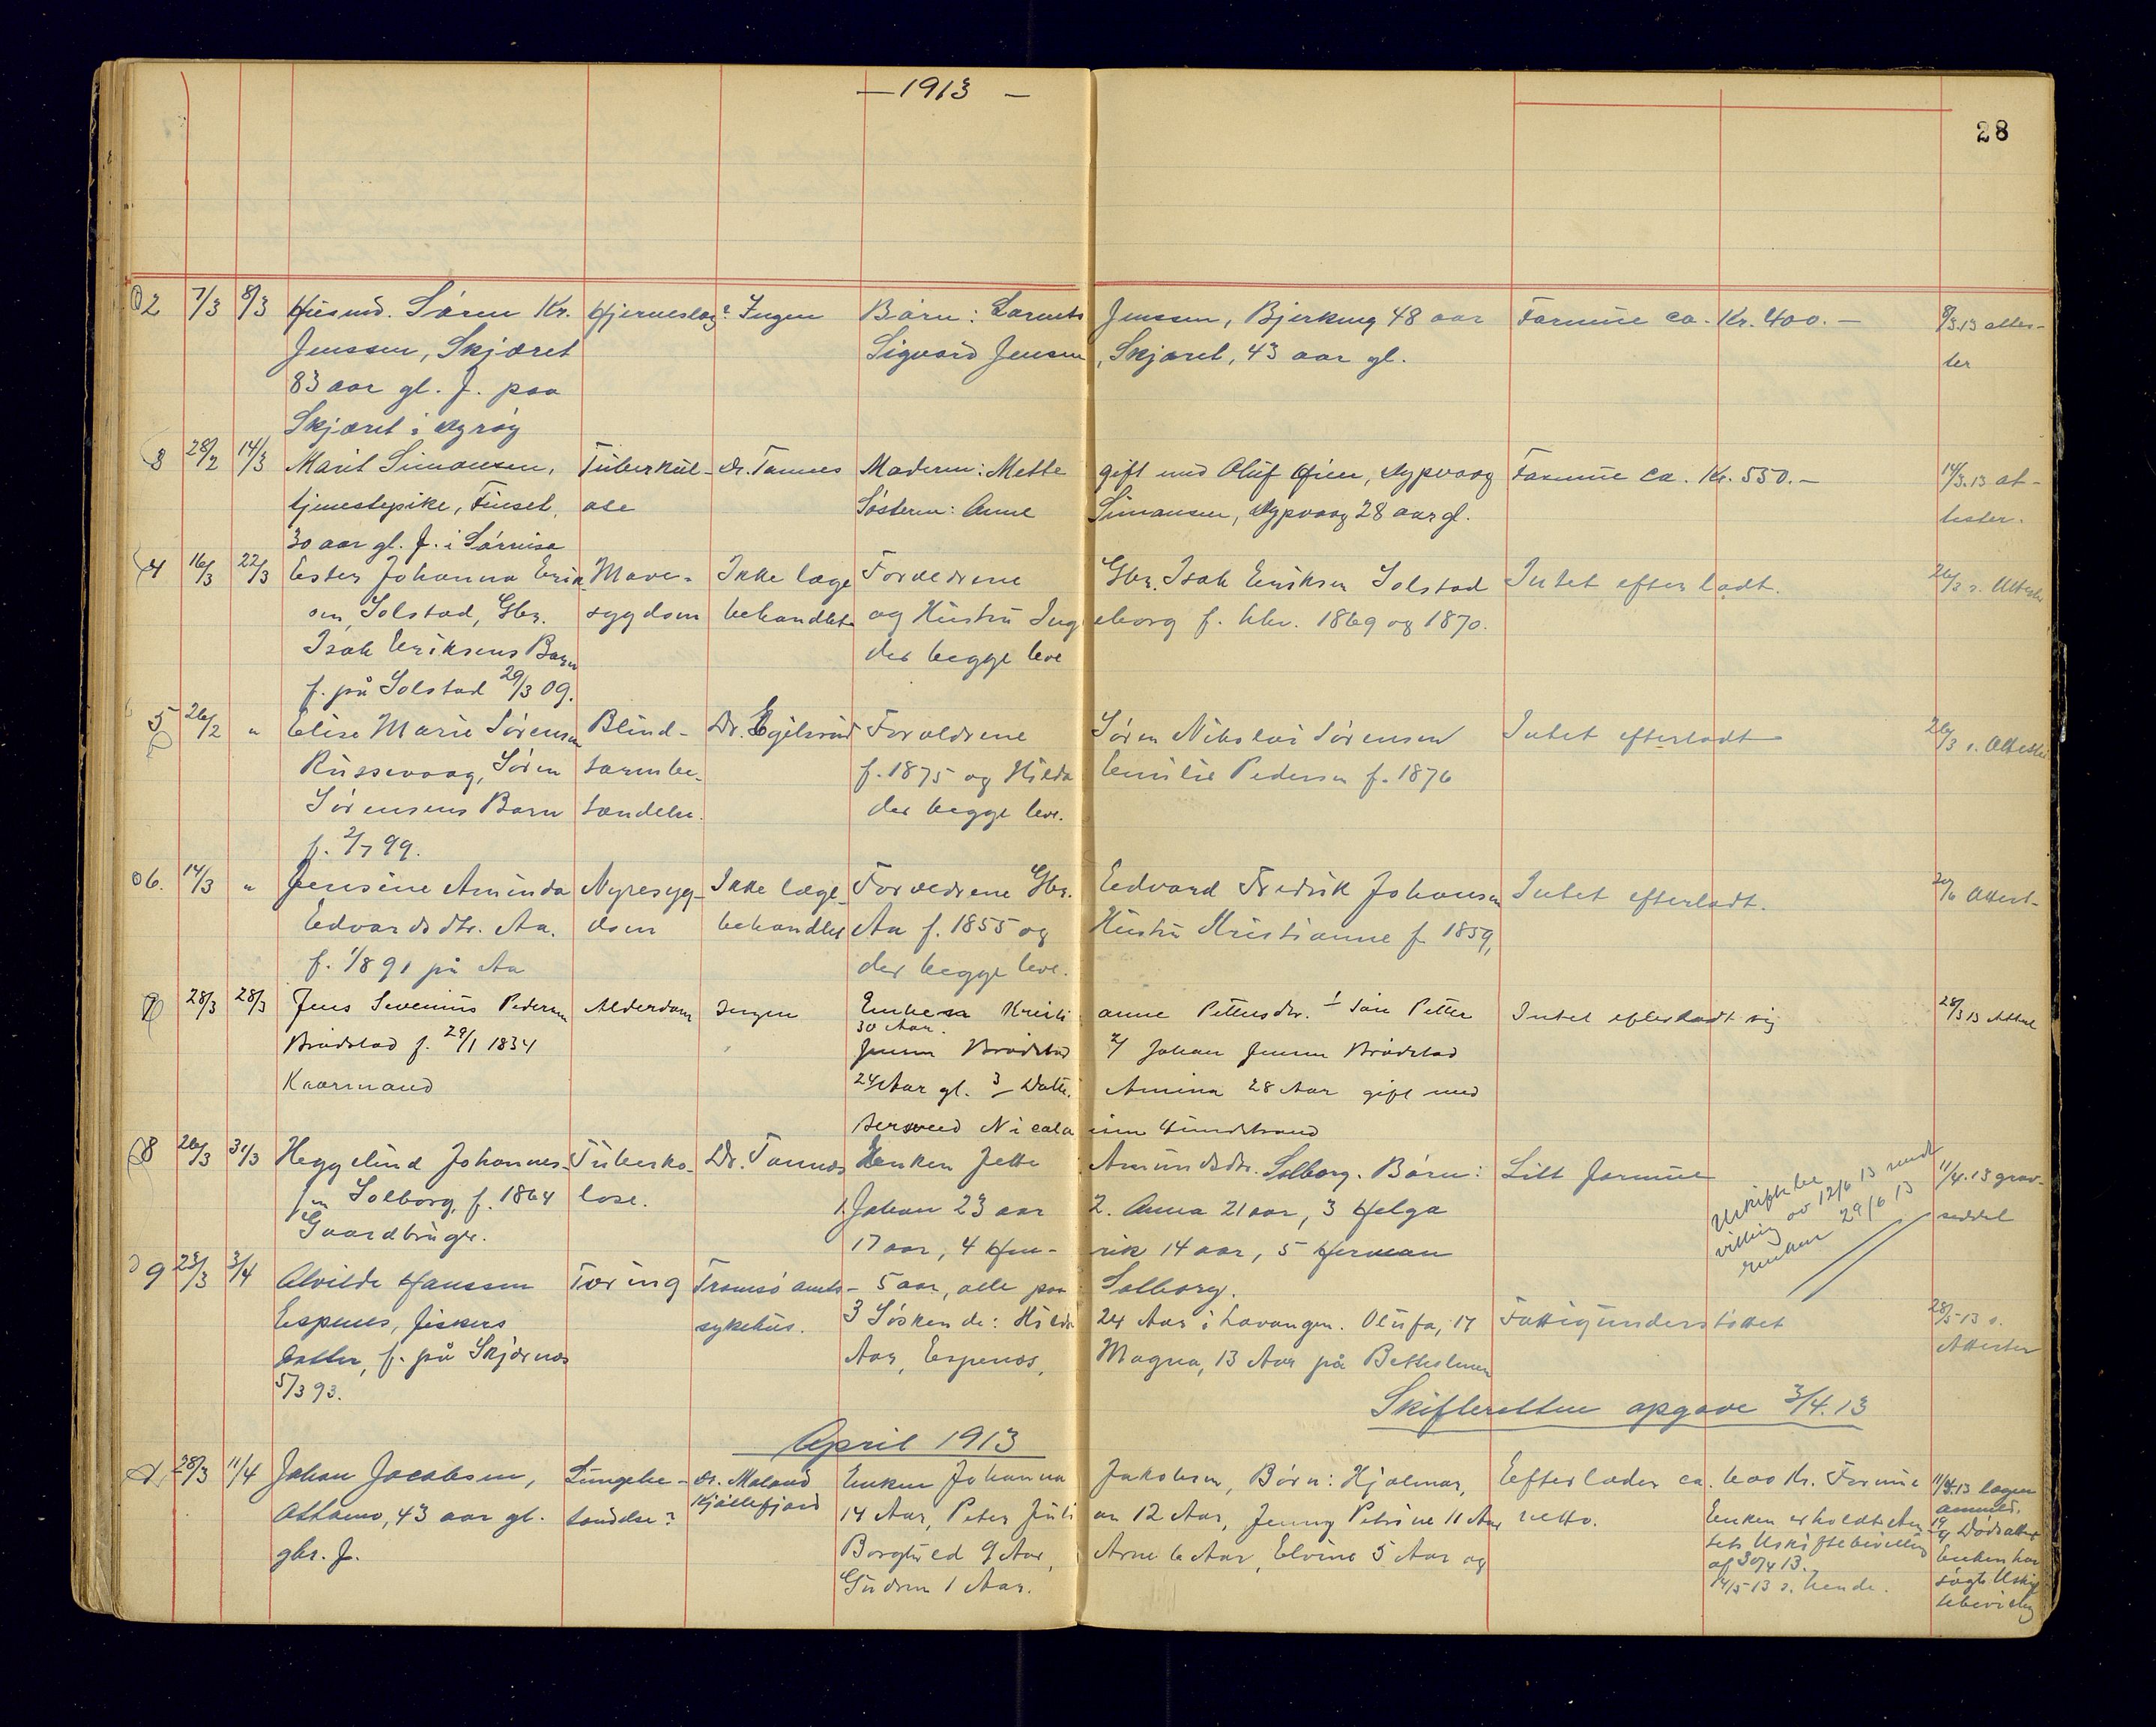 — 1913 —
28
2 7/3 8/3 Husmd. Sören Kr. Hjerneslag? Ingen Börn: Lornts Jenssen, Bjerkeng 48 aar Formue ca. Kr. 400.— 8/3.13 attes-
Jenssen, Skjæret Sigvard Jensen, Skjæret, 43 aar gl. ter
83 aar gl. f. paa
Skjæret i
3 28/2 14/3 Marit Simonsen, Tuberkul- Dr. Tannæs Moderen: Mette gift med Oluf Nypvaag Formue ca. Kr. 550.— 14/3.13 at-
tjenestepike, Finset, ose Söstern: Anne Simonsen, Nypvaag 28 aar gl. tester.
30 aar gl. f. i Sörreisa
4 16/3 22/3 Ester Johanna Erik- Mave- Ikke læge Forældrene Gbr. Isak Eriksen Solstad Intet efterladt. 26/3 s. Attester
sen, Solstad, Gbr. sygdom behandlet og Hustru Ingeborg f. hhv. 1869 og 1870.
Isak Eriksens Barn der begge leve
f. på Solstad 29/3 09.
5 26/2 " Elise Marie Sörensen Blind- Dr. Egilsrud Forældrene Sören Nikolai Sörensen Intet efterladt 26/3 s. Attester
Russevaag, Sören tarmbe- f. 1875 og Hilda Emilie Pedersen f. 1876
Sörensens Barn tændelse. der begge leve.
f. 2/7 99.
6. 14/3 " Jensine Aminda Nyresyg- Ikke læge- Forældrene Gbr. Edvard Fredrik Johansen Intet efterladt. Attest-
Edvardsdtr. Aa. dom behandlet Aa f. 1855 og Hustru Kristianne f. 1859,
f. 1/8 91 på Aa der begge leve.
7 28/3 28/3 Jens Sevenius Pedersen Alderdom Ingen Enken Kristianne Pettersdtr. 1/ Sön Petter Intet efterladt sig 28/3 13 Attest
30 Aar.
Brödstad f. 29/1 1834 Jensen Brödstad 2/ Johan Jensen Brödstad
Kaarmand 24 Aar gl. 3/ Datter Amina 28 Aar gift med
Nicolaisen
8 26/3 31/3 Heggelund Johannes- Tuberko- Dr. Tannæs Enken Jette Amundsdtr. Solborg. Börn: Litt formue 11/4.13 grav-
sen Solborg, f. 1864 lose. 1. Johan 23 aar 2. Anna 21 aar, 3 Helga seddel
Gaardbruger. 17 aar, 4 Hen- rik 14 aar, 5 Herman
Uskiftebe
villing av 12/6 13 sendt
enken 29/6 13
9 23/3 3/4 Alvilde Hanssen Tæring Tromsö amts- 5 aar, alle paa Solborg.
Espenes, fiskers sykehus. 3 Söskende: Hilda 24 Aar i Lavangen. Olufa, 17 Fattigunderstöttet 28/5 13 s.
datter, f. på Skjærnæs Aar, Espenes, Magna, 13 Aar på Attester
5/3 93.
Skifteretten opgave 3/4.13
April 1913
1, 28/3 11/4 Johan Jacobsen, Lungebe- Dr. Maland Enken Johanna Jakobsen, Börn: Hjalmar, Efterlader ca. 600 Kr. Formue 11/4.13 lagen
43 aar gl. tændelse? Kjöllefjord 14 Aar, Peter Julian 12 Aar, Jenny Petrine 11 Aar netto. Enken erholdt Am
gbr. f. Borghild 9 Aar, Arne 6 Aar, Elvine 5 Aar og tets Uskiftebevilling Dödsattest
Gudrun 1 Aar. af 30/4 13. Enken har
14/5 13 s. hende. sögt Uskif
tebevilling